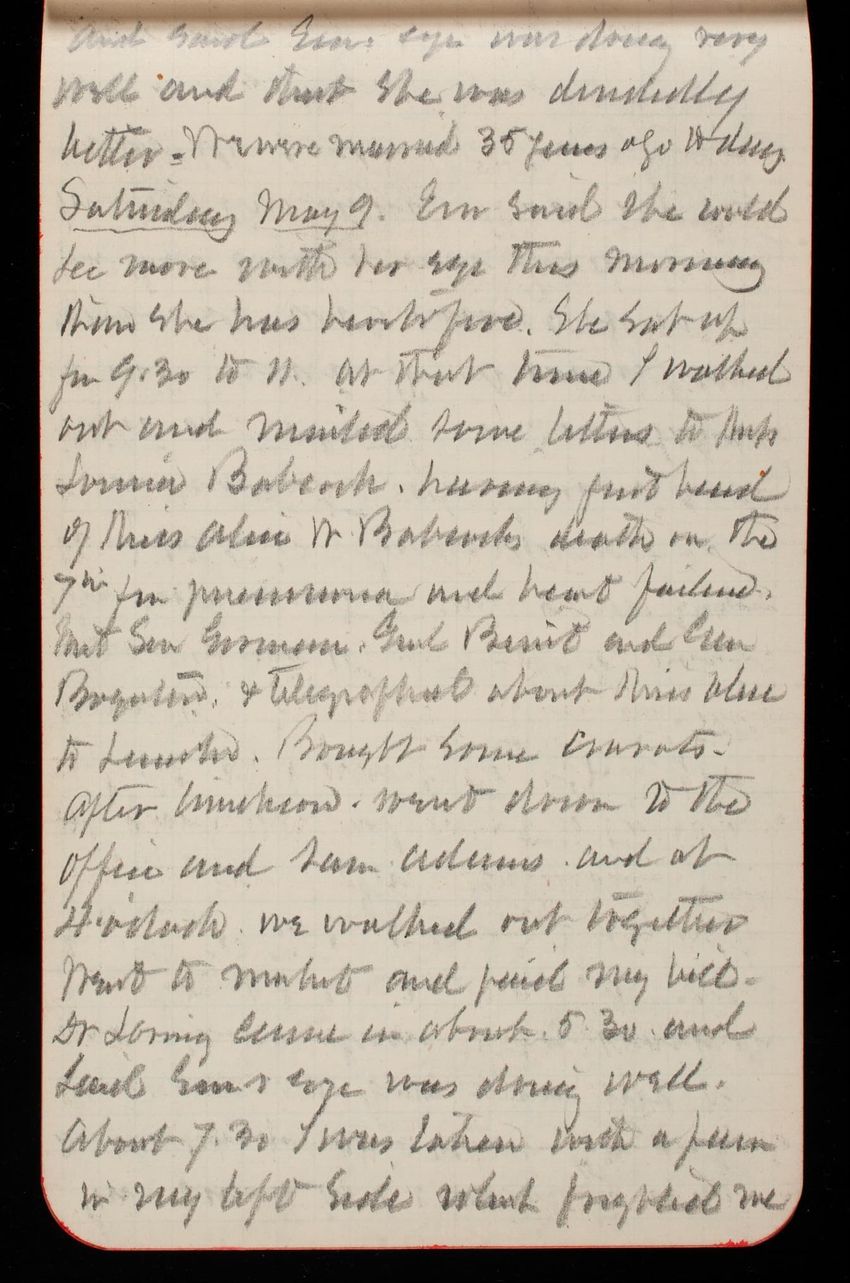 and said Em's eye was doing very
well and that she was decidedly
better. We were married 35 years ago to day
Saturday May 9. Em said she could
see more with her eye this morning
than she has heretofore. She sat up
from 9.30 to 11. at that time I walked
out and mailed some letters to Miss
Louisa Babcock. having just heard
of Miss Alice W Babcocks death on the
7th from pneumonia and heart failure.
Met Sen Gorman. Genl Benét and Gen
& telegraphed about Miss Alice
to Bought some cravats.
After luncheon. went down to the
office and saw Adams. and at
4 o'clock we walked out together
Went to market and paid my bill.
Dr Loring came in about 5 30 and
said Em's eye was doing well.
About 7.30 I was taken with a pain
in my left side what me